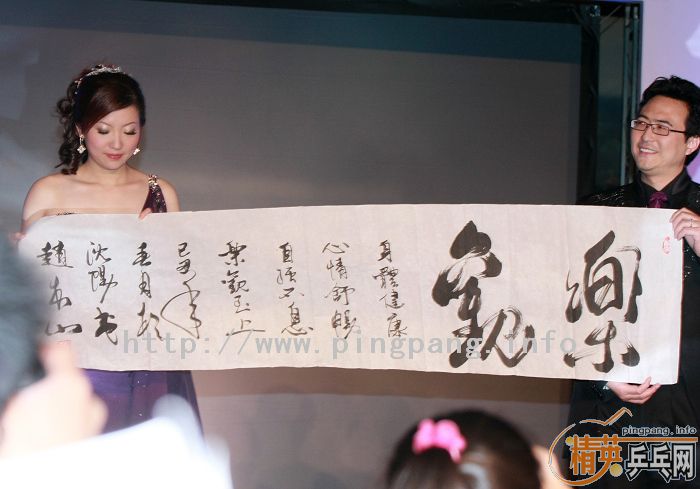 樂觀
身體健康
心情舒暢
自强不息
樂觀至上
己丑年
春月於
沈陽書
趙本山
http://www.pingpang.info
pingpang.info
精英乒乓网